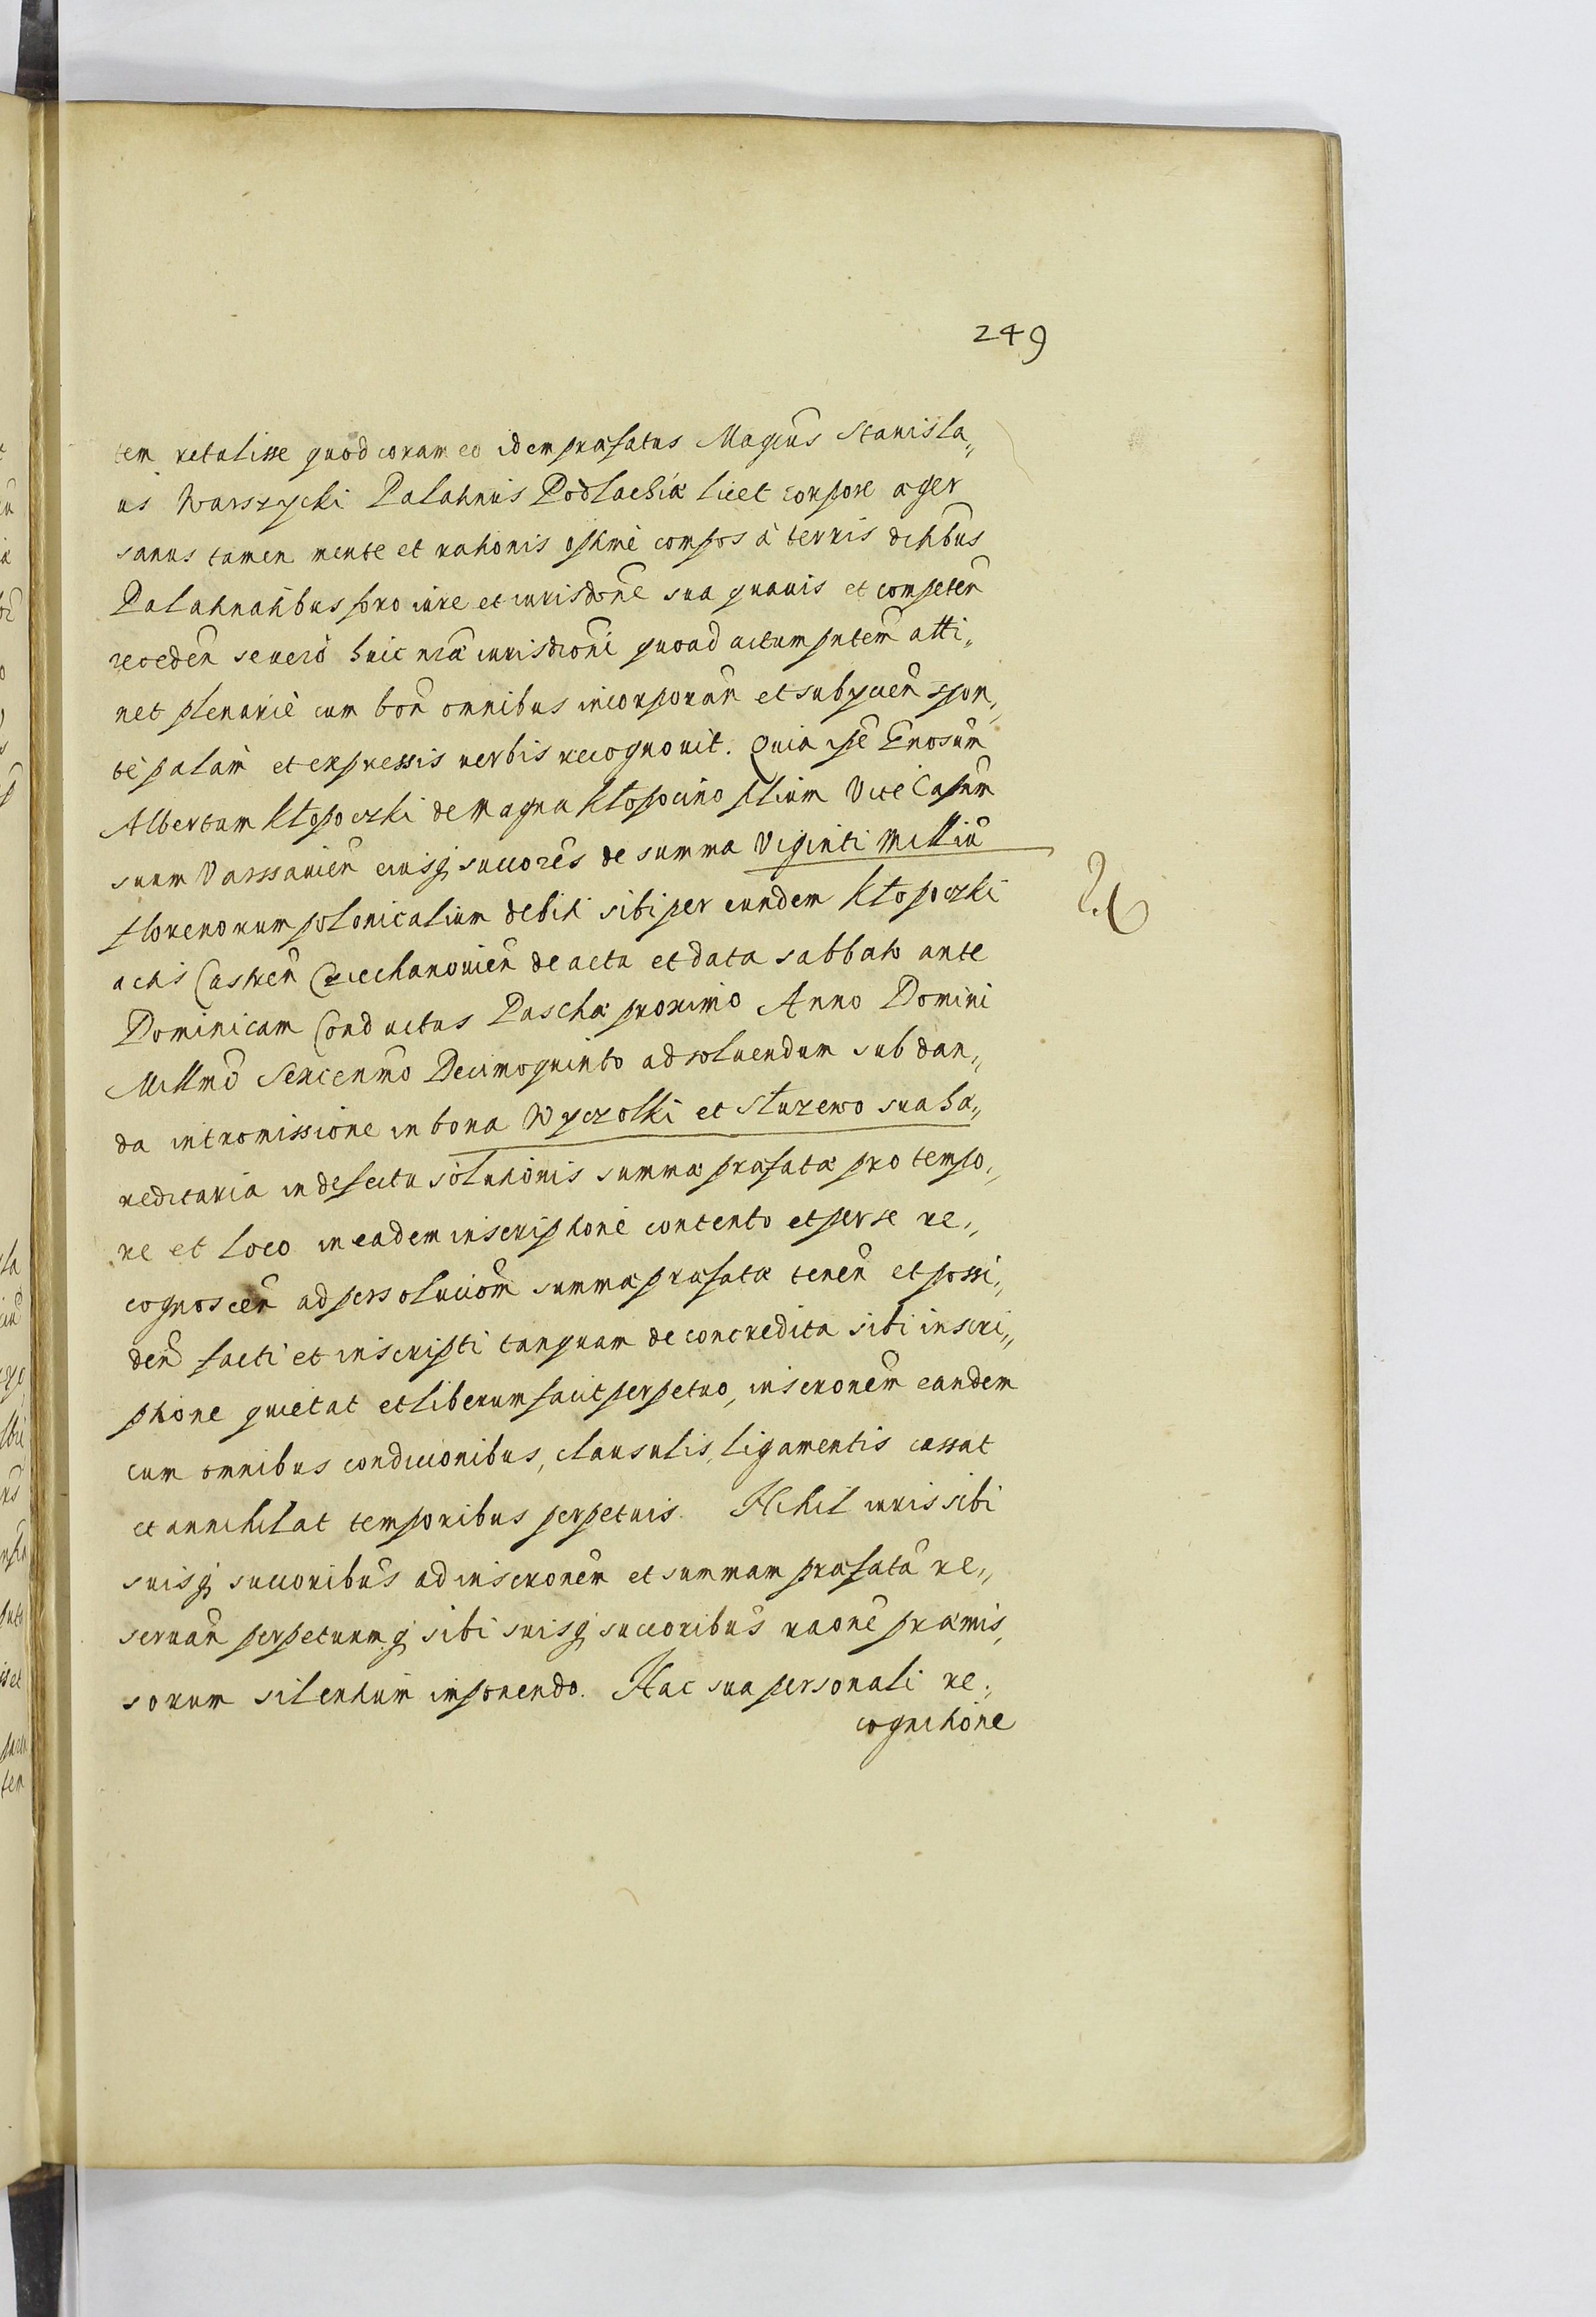 249
tem retulisse quod coram eo idem præfatus Magcus Stanisla„
us Warszycki Palatinus Podlachiæ licet corpore æger
sanus tamen mente et rationis optime compos à terris dictibus
Palatinatibus pro iure et iurisdone sua quauis et competen
receden seuero huic nræ iurisdioni quoad actum pntem atti„
net plenariè cum bon omnibus incorporan et subyicien spon„
tè palam et expressis verbis recognouit. Quia ipse Gnosum
Albertum Kłopoczki de Magna Kłopocino filium Vice Capnm
suum Varssauien eiusq succores de summa Viginti Milliu
florenorum polonicalium debiti sibi per eundem Kłopoczki
actis Castren Cziechanouien de actu et data sabbato ante
Dominicam Conductus Paschæ proximo Anno Domini
Millmo Sexcenmo Decimoquinto ad soluendum sub dan„
da intromissione in bona Wyczołki et Służewo sua hæ„
reditaria in defectu solutionis summæ præfatæ pro tempo„
re et loco in eadem inscriptione contento et per se re„
cognoscen ad persoluciom summæ præfatæ tenen et possi„
den facti et inscripti tanquam de concredita sibi inscri„
ptione quietat et liberum facit perpetuo, inscronem eandem
cum omnibus condicionibus, clausulis, ligamentis cassat
et annihilat temporibus perpetuis. Nihil iuris sibi
suisq succoribus ad inscronem et summam præfatã re„
seruan perpetuumq sibi suisq succoribus raone præmis„
sorum silentium imponendo. Hac sua personali re„
cognitione